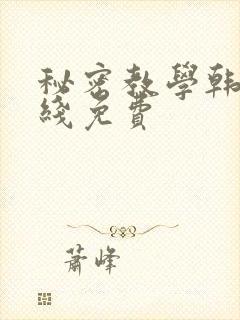 秘密教學韩
綫免費
蕭峰